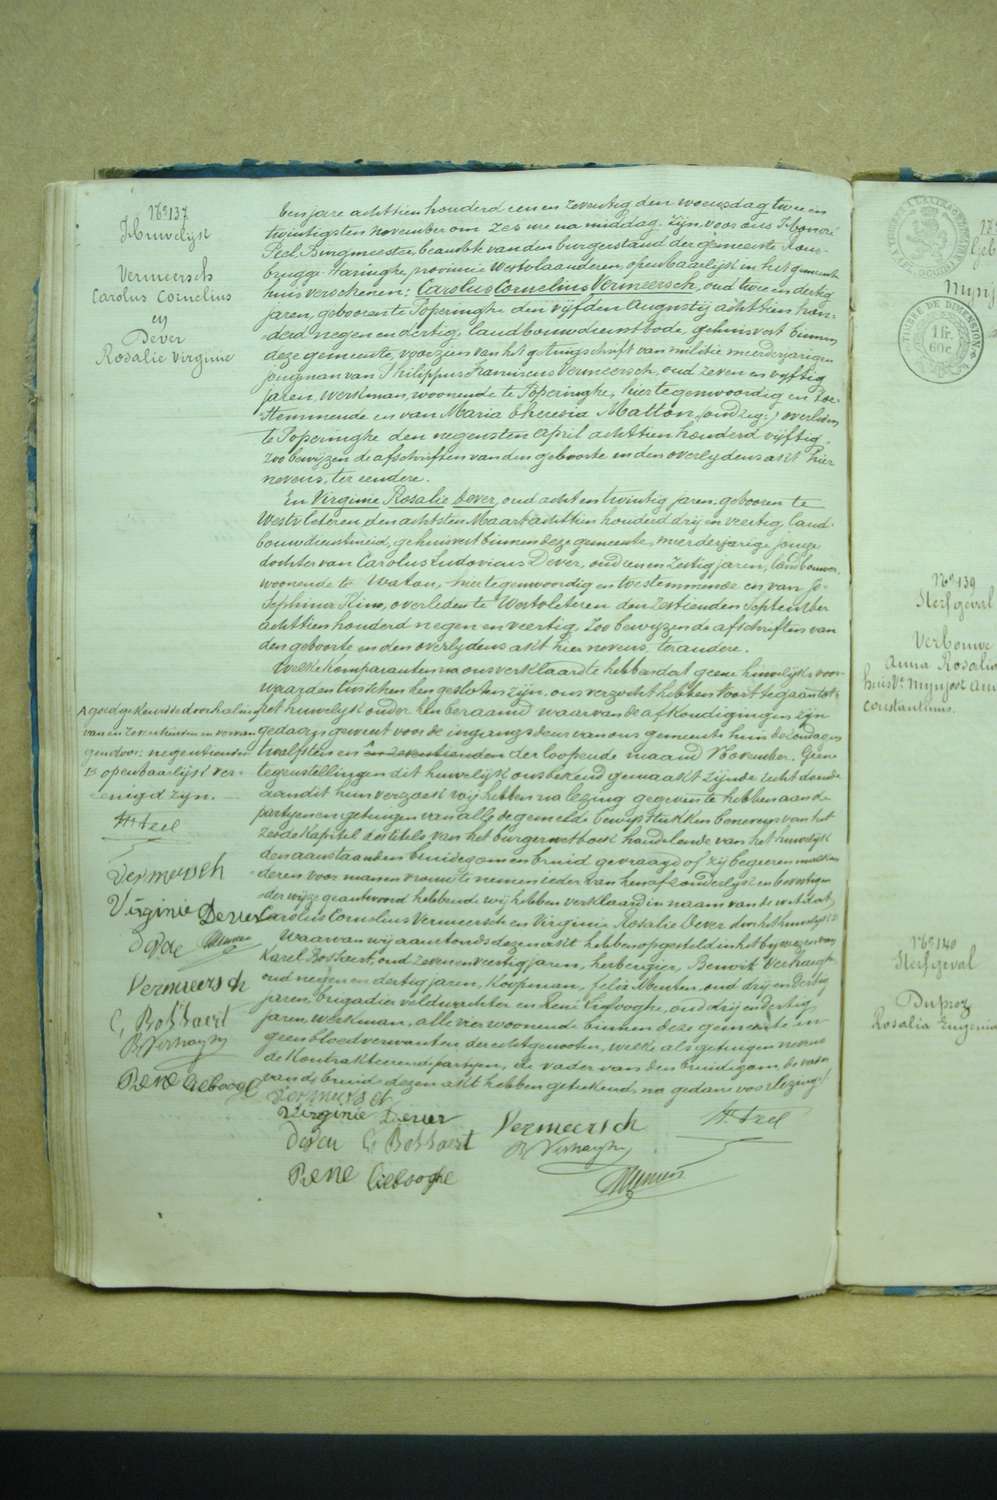 No 137
Huwelijk
Vermeersch
Carolus Cornelius
en
Dever
Rosalie Virginie
ben jare achttien honderd een en zeventig den woensdag twee en
twintigsten november om zes ure na middag, zijn voor ons Honoré
Peel, Burgmeester, beambte van den burgerstand der gemeente Rous-
brugge-Haringhe, provincie Westvlaanderen, openbaarlijk in het gemeente
huis verschenen: Carolus Cornelius Vermeersch, oud twee en dertig
jaren, geboren te Poperinghe den vijfden Augusty achttien hon-
derd negen en dertig, landbouwdienstbode, gehuisvest binnen
deze gemeente, voorzien van het getuigschrift van militie meerderjarigen
jongman van Philippus Franciscus Vermeersch, oud zeven en vyftig
jaren, werkman, woonende te Poperinghe, hier tegenwoordig en toe-
stemmende en van Maria Theresia Matton, overleden
te Poperinghe den negensten april achttien honderd vijftig.
Zoo bewyzen de afschriften van den geboorte en den overlydens akt hier
nevens, ter eendere.
En Virginie Rosalie Dever, oud acht en twintig jaren, gebooren te
Westvleteren den achtsten Maart achttien honderd drij en veertig, land-
bouwdienstmeid, gehuisvest binnen deze gemeente, meerderjarige jonge
dochter van Carolus Ludovicus Dever, oud een en zestig jaren, landbouwer,
woonende te Watou, hier tegenwoordig en toestemmende en van Jo-
sephina Kino, overleden te Westvleteren den zestienden September
achttien honderd negen en veertig, Zoo bewyzen de afschriften van
den geboorte en den overlydens akt hier nevens, ter andere.
Welke komparanten na ons verklaard te hebben dat geene huwelijks voor-
waarden tusschen hen gesloten zijn, ons verzocht hebben voort te gaan tot
het huwelijk onder hen beraamd waarvan de afkondigingen zijn
gedaan geweest voor de ingangsdeur van ons gemeente huis de zondagen
twelfsten en den zeventienden der loopende maand November. Geene
tegenstellingen dit huwelijk ons bekend gemaakt zijnde recht doende
aan dit hun verzoek wij hebben na lezing gegeven te hebben aan de
partyen en getuigen van alle de gemelde bewijs stukken benevens van het
zesde Kapitel des titels van het burgerwetboek handelende van het huwelijk
den aanstaanden bruidegom en bruid gevraagd of zij begeeren malkan-
deren voor man en vrouw te nemen ieder van hen afzonderlijk en bevestigen-
der wijze geantwoord hebbende wij hebben verklaard in naam van de wet dat
Carolus Cornelius Vermeersch en Virginie Rosalie Dever door het huwelijk B
Waarvan wij aanstonds dezen akt hebben opgesteld in het bywezen van
Karel Bossaert, oud zeven en veertig jaren, herbergier, Benoit Verhaeghe,
oud negen en dertig jaren, Koopman, Felix Meurten, oud drij en dertig
jaren, brigadier veldwachter en René Liefooghe, oud drij en dertig
jaren, werkman, alle vier woonende binnen deze gemeente en
geen bloedverwanten der echtgenooten, welke als getuigen nevens
de kontrakteerende partyen, de vader van den bruidegom, de vader
van de bruid dezen akt hebben geteekend, na gedane voorlezing.
A goedgekeurd de doorhaling
van een en zeventienden en vervan-
gen door: negentienden
B openbaarlijk ver-
eenigd zijn.
H. Peel
Vermeersch
Virginie Dever
Vermeersch
C. Bossaert
B Verhaeghe
René Liefooghe
Vermeersch
Virginie Dever
Vermeersch
H. Peel
C. Bossaert
B Verhaeghe
René Liefooghe
TIMBRE DE DIMENSION
1 fr.
60 c.
No 139
Sterfgeval
Verbouwe
Anna Rosalia
huisve Mynjost
Constantinus.
No 140
Sterfgeval
Duprez
Rosalia Eugenia